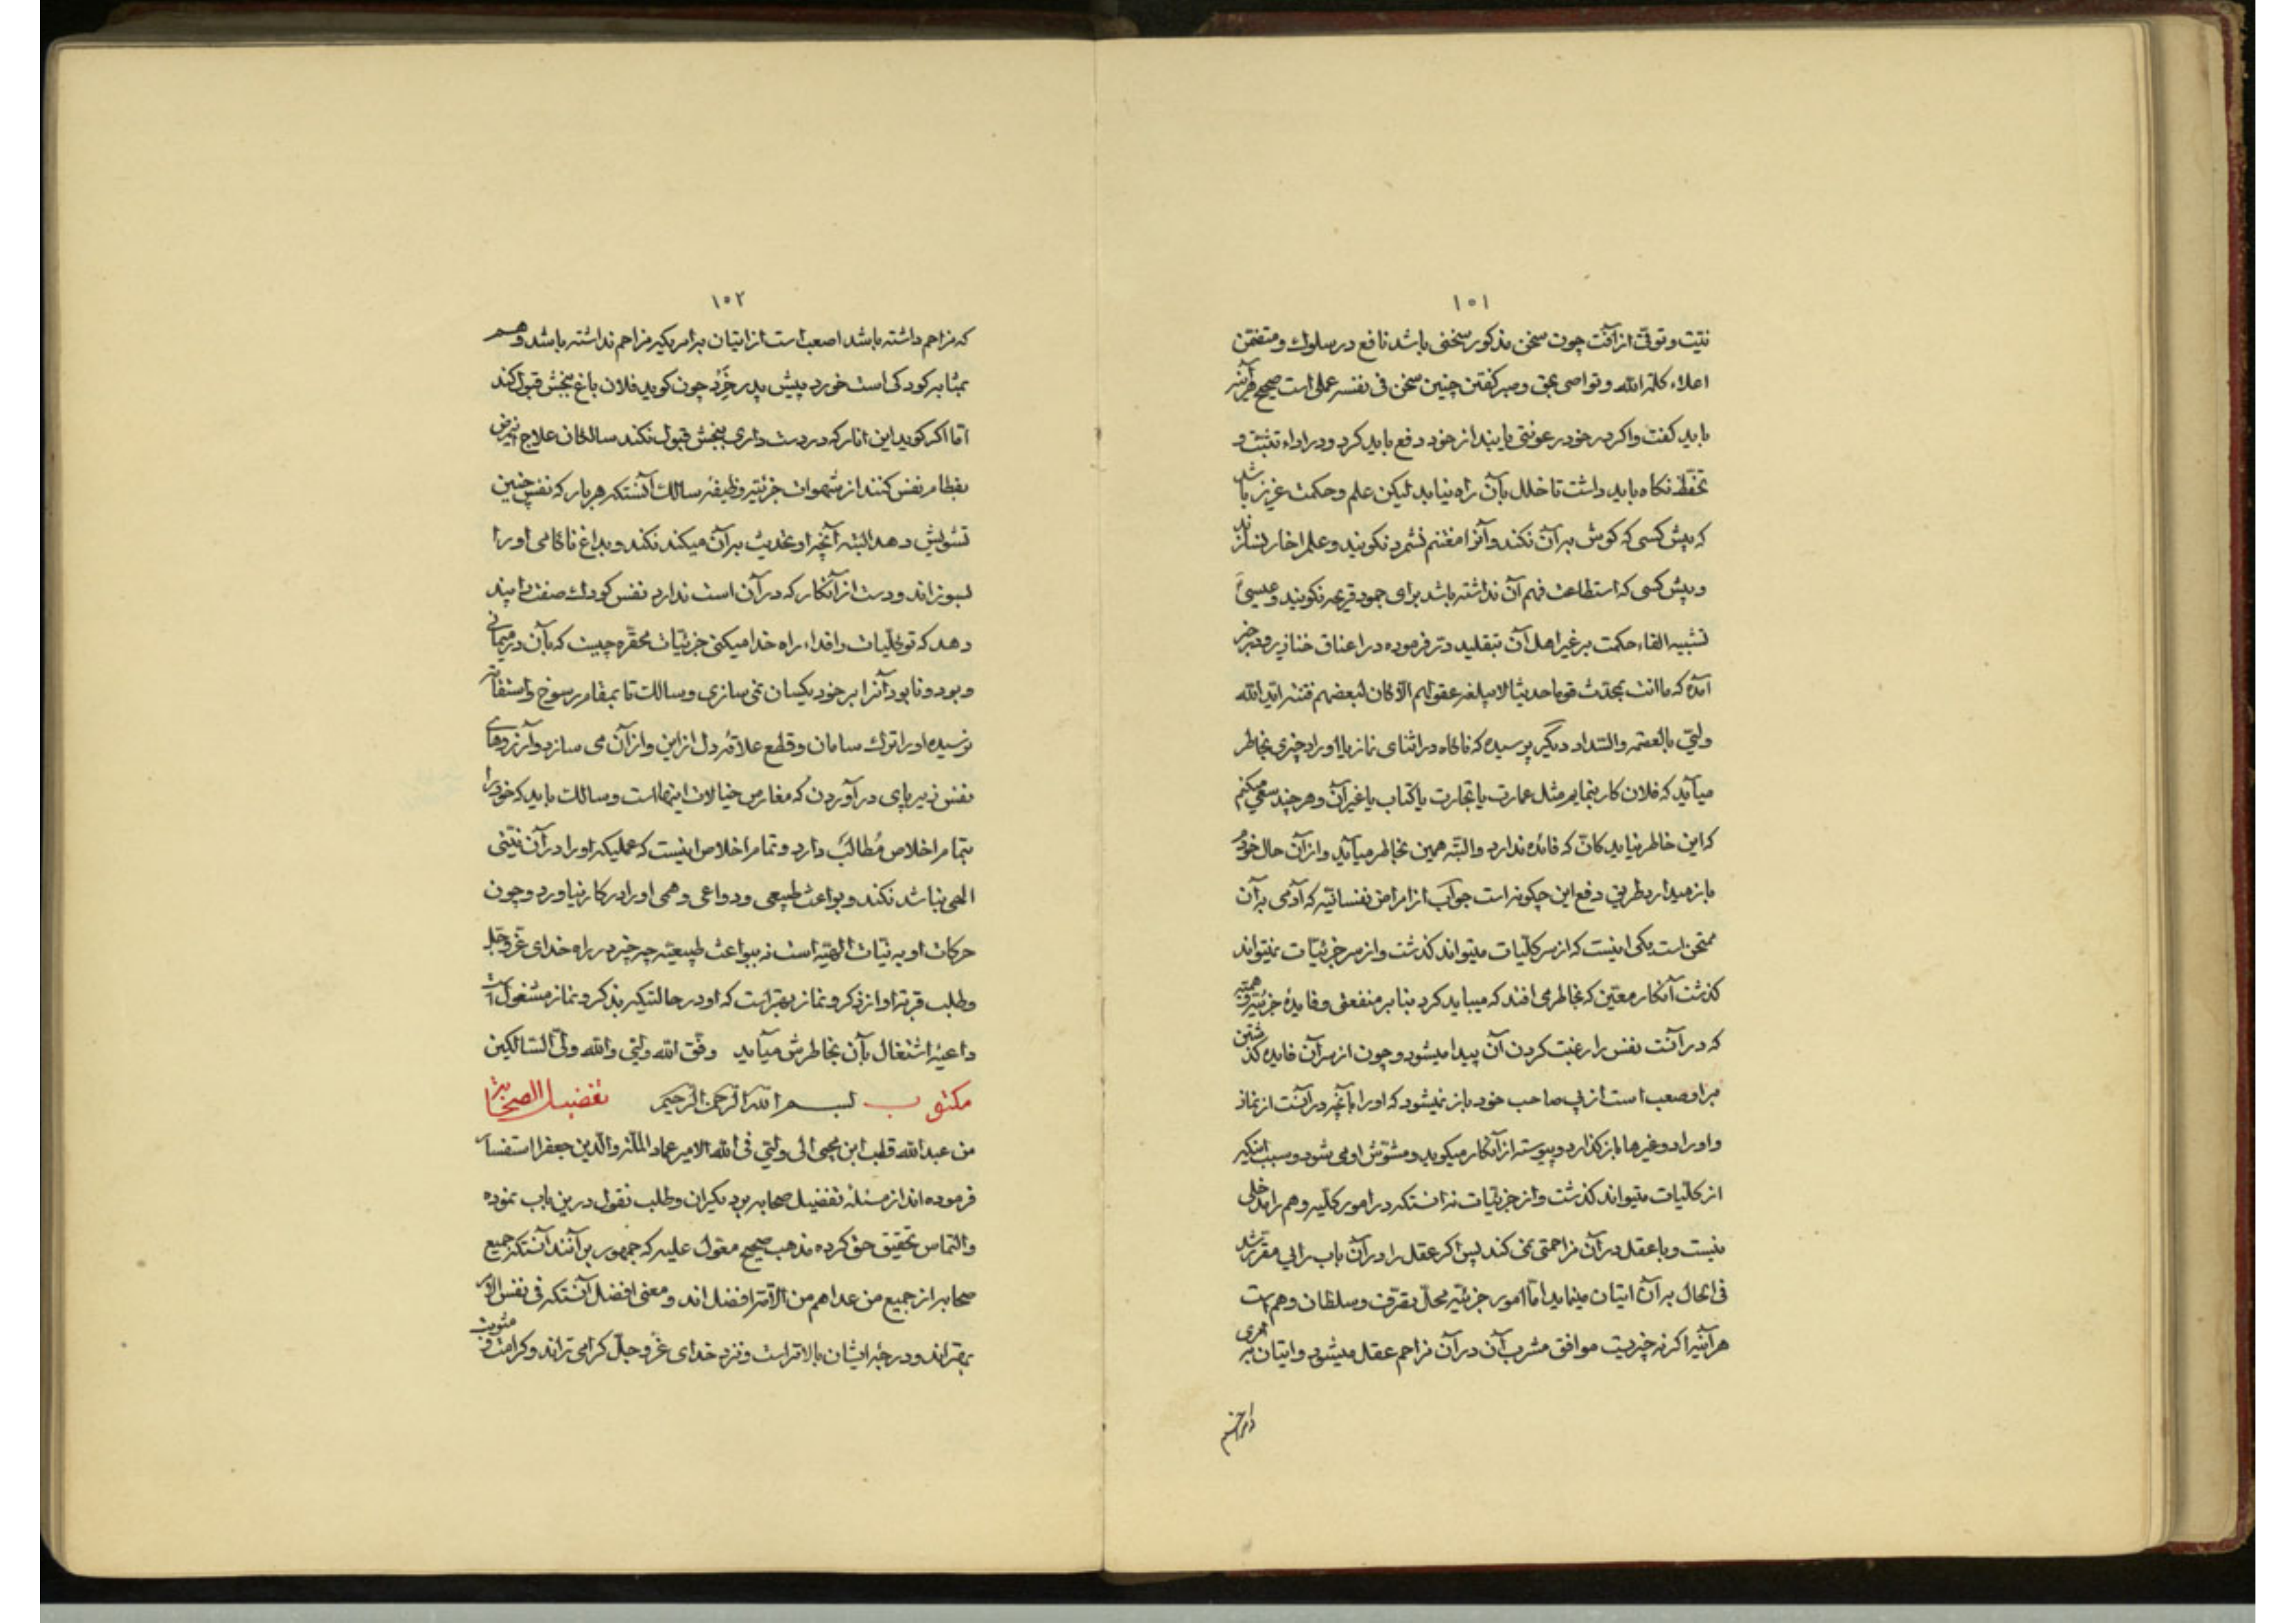 ١٥١
نیت و توقی از آفت چون سخن مذکور سخنی باشد نافع در سلوك و متضمن
اعلاء کلمة الله و تواصی بحق و صبر کفتن چنین سخن فی نفسه عملی است صحیح هرآینه
باید کفت و اکر در خود رعونتی یابند از خود دفع باید کرد و در اداء تثبت و
تحفظ نکاه باید داشت تا خلل بآن راه نیابد لیکن علم و حکمت عزیز باشد
که پیش کسی که کوش بر آن نکند و آنرا مغتنم نشمرد نکویند و علم را خار نسازند
و پیش کسی که استطاعت فهم آن نداشته باشد برای جمود قریحه نکویند و عیسی
تشبیه القاء حکمت بر غیر اهل آن بتقلید در فرموده در اعناق خنازیر و در خبر
آمده که ما انت بمحدث قوما حدیثا لا یبلغه عقولهم الا کان لبعضهم فتنة ایّد الله
ولیّی بالعصمة والسداد دیگر پرسیده که ناکاه در اثنای نماز یا اوراد چیزی بخاطر
میآید که فلان کار بنمایم مثل عمارت یا تجارت یا کتاب یا غیر آن و هر چند سعی میکنم
که این خاطر نیاید کان که فائده ندارد و البته همین بخاطر میآید و از آن حال خود
باز میدارد طریق دفع این چکونه است جواب از امراض نفسانیه که آدمی بر آن
ممتحن است یکی اینست که از سر کلیات میتواند کذشت و از سر جزئیات نمیتواند
کذشت آنکار معین که بخاطر می افتد که میباید کرد بنا بر منفعتی و فایدهٔ جزئیه وهمیه
که در آنست نفس را رغبت کردن آن پیدا میشود و چون از سر آن فایده کذشتن
بر او صعب است از پی صاحب خود باز نمیشود که او را بآنچه در آنست از نماز
و اوراد و غیرها باز کذارد و پیوسته از آنکار میکوید و مشوش او می شود و سبب اینکه
از کلیات میتواند کذشت و از جزئیات نه انستکه در امور کلیه وهم را مدخلی
نیست و با عقل در آن مزاحمتی نمی کند پس اکر عقل را در آن باب رایی مقرر شد
فی الحال بر آن اتیان مینماید اما امور جزئیه محل تصرف و سلطان وهم است
هرآینه اکر نه چیزیست موافق مشرب آن در آن مزاحم عقل میشود و اتیان بر امری
١٥٢
که مزاحم داشته باشد اصعب است از اتیان بر امریکه مزاحم نداشته باشد و هم
بمثابه کودکی است خورد پیش پدر خِرَد چون کوید فلان باغ ببخش قبول کند
اما اکر کوید این انار که در دست داری ببخش قبول نکند سالکان علاج این مرض
بفطام نفس کنند از شهوات جزئیه وظیفهٔ سالك آنستکه هر بار که نفس چنین
تشویش دهد البته آنچه او تحدیث بر آن میکند نکند و بداغ ناکامی او را
بسوزاند و دست از آنکار که در آن است ندارد نفس کودك صفت را پند
دهد که تو کلیات را فداء راه خدا میکنی جزئیات محقره چیست که بآن در میمانی
و بود و نابود آنرا بر خود یکسان نمی سازی و سالك تا بمقام رسوخ و استقامة
نرسیده او را ترك سامان و قطع علاقهٔ دل از این و از آن می سازد و آرزوهای
نفس زیر پای در آوردن که مغارس خیالات اینهاست و سالك باید که خود را
بتمام اخلاص مُطالَب دارد و تمام اخلاص اینست که عملیکه او را در آن نیتی
الهی نباشد نکند و بواعث طبیعی و دواعی وهمی او را در کار نیاورد و چون
حرکات او به نیات الهیه است نه ببواعث طبیعیه چه چیز در راه خدای عز و جل
و طلب قربة او از ذکر و نماز بهتر است که او در حالتیکه بذکر و نماز مشغول است
داعیهٔ اشتغال بآن بخاطرش میآید وفق الله ولیّی والله ولیّ السالکین
مکتوب بسم الله الرحمن الرحیم تفضیل الصحابة
من عبدالله قطب ابن محیی الی ولیّی فی الله الامیر عماد الملة والدین جعفر استفسار
فرموده اند از مسئلهٔ تفضیل صحابه بر دیکران و طلب نقول درین باب نموده
و التماس تحقیق حق کرده مذهب صحیح معول علیه که جمهور بر آنند آنستکه جمیع
صحابه از جمیع من عداهم من الامة افضل اند و معنی افضل آنستکه فی نفس الامر
بهتر اند و درجهٔ ایشان بالاتر است و نزد خدای عز و جل کرامی تراند و کرامت و مثوبت